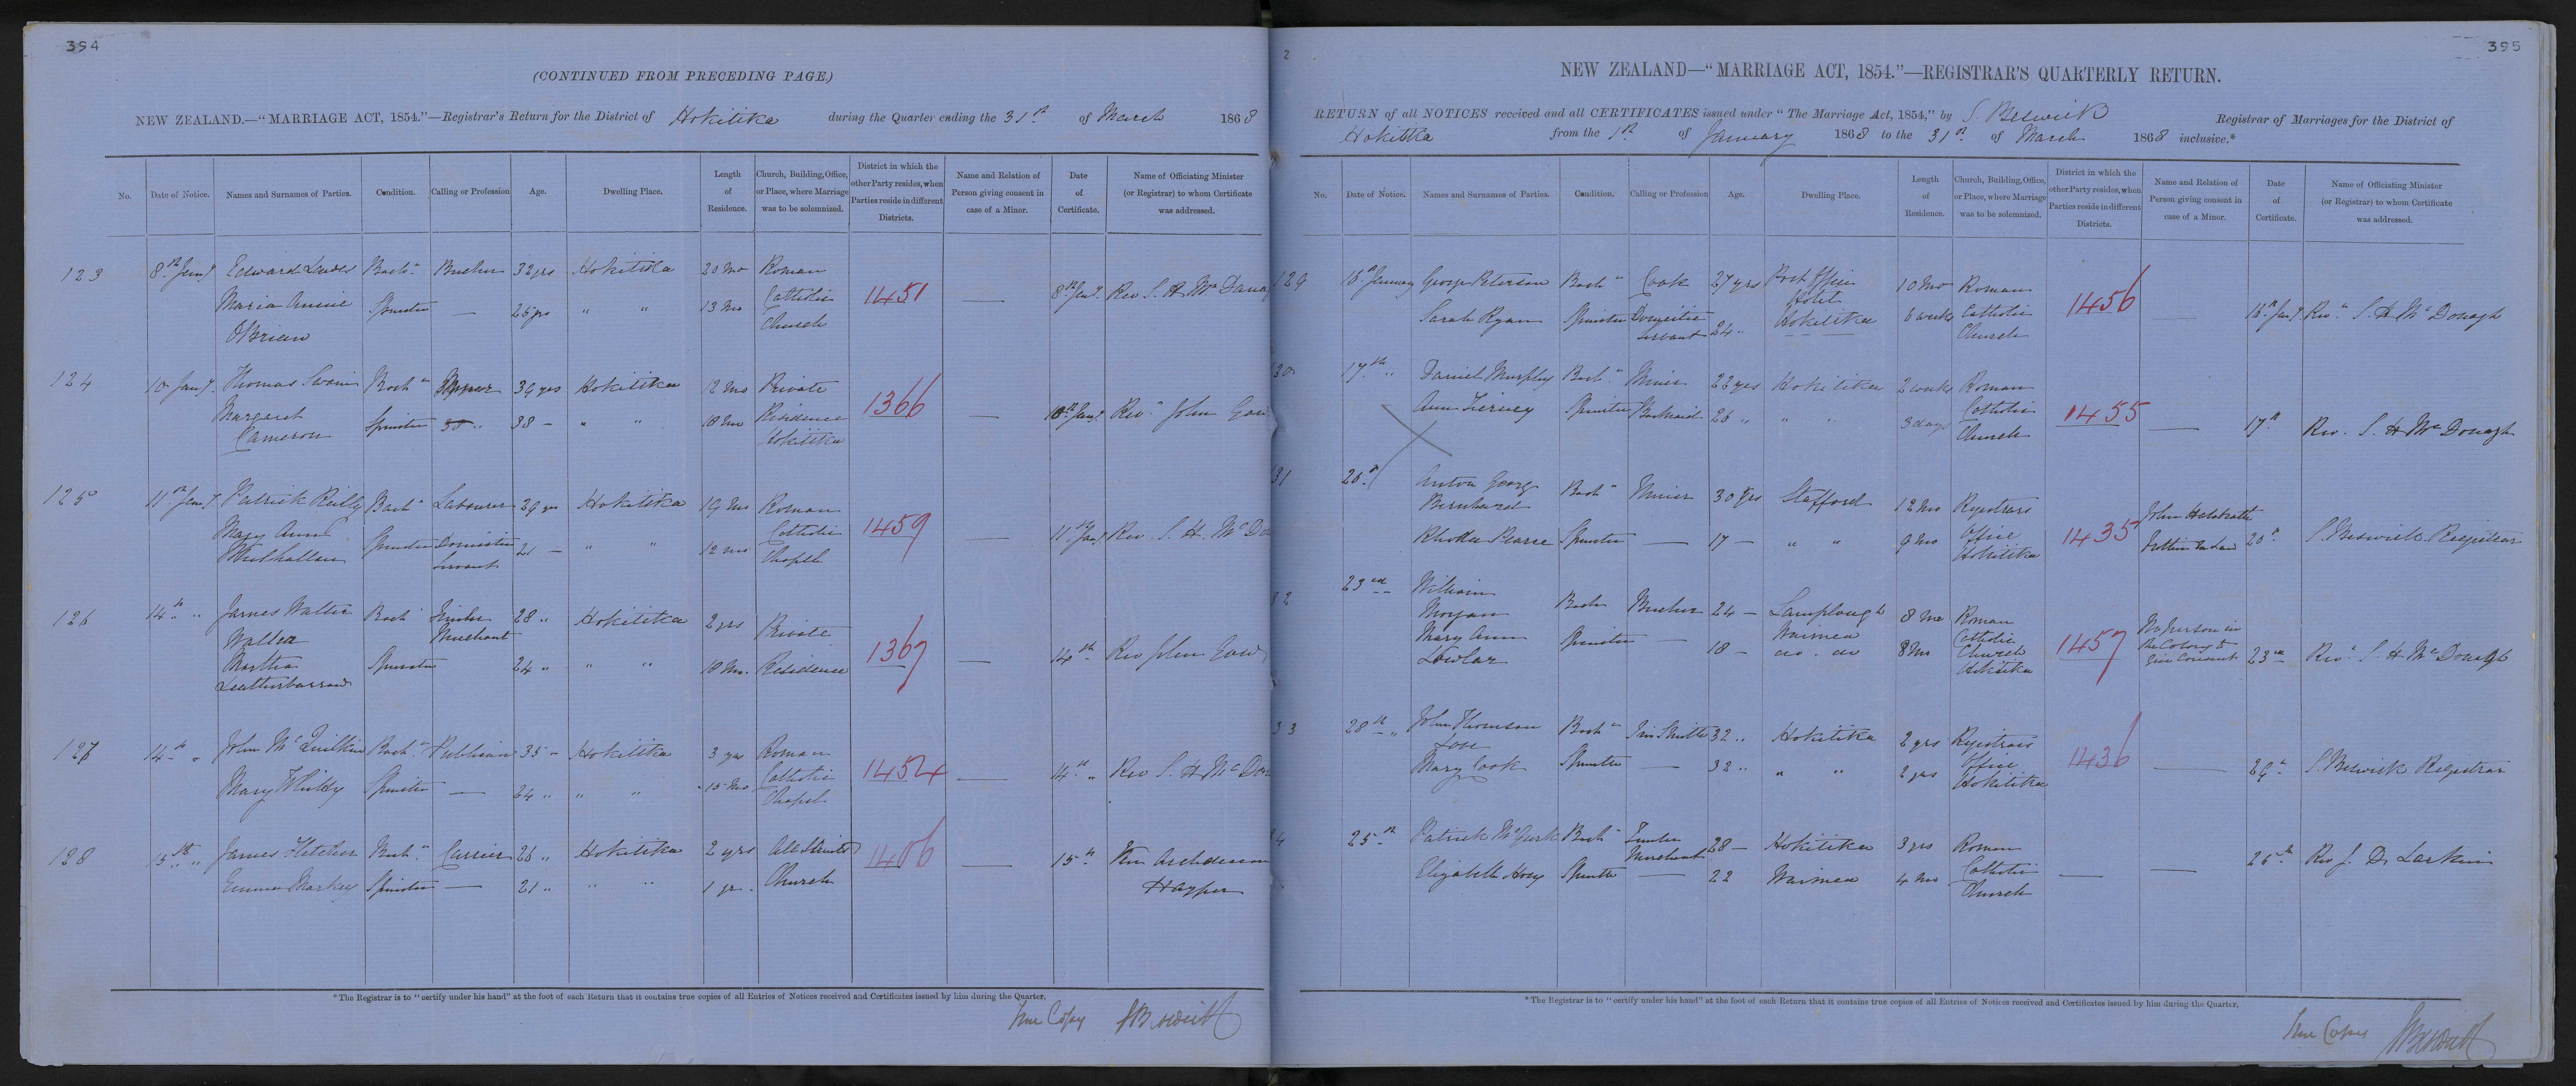 394
(CONTINUED FROM PRECEDING PAGE.)
NEW ZEALAND.—"MARRIAGE ACT, 1854."—Registrar's Return for the District of Hokitika during the Quarter ending the 31st of March 1868
No. Date of Notice. Names and Surnames of Parties. Condition. Calling or Profession Age. Dwelling Place. Length of Residence. Church, Building, Office, or Place, where Marriage was to be solemnized. District in which the other Party resides, when Parties reside in different Districts. Name and Relation of Person giving consent in case of a Minor. Date of Certificate. Name of Officiating Minister (or Registrar) to whom Certificate was addressed.
123 8th Jany Edward Bach Butcher 32 yrs Hokitika 20 Mo Roman
Maria Annie Spinster — 25 yrs " " 13 Mo Catholic 1451 — 8th Jany Rev S. H. Mc
O'Brien Church
124 10 Jany Thomas Swain Bach 39 yrs Hokitika 12 Mo Private
Margaret Spinster 38 — " " 18 Mo Residence 1366 — 10th Jany Rev John Gow
Cameron Hokitika
125 11th Jany Patrick Reilly Bach Labourer 29 yrs Hokitika 19 Mo Roman
Mary Ann Spinster Domestic 21 — " " 12 Mo Catholic 1459 — 11th Jany Rev S. H. Mc Do
Mulhallan Servant Chapel
126 14th " James Walter Bach Timber 28 " Hokitika 2 yrs Private
Waller Merchant
Martha Spinster 24 " " " 18 Mo. Residence 1367 — 14th Rev John Gow
Leatherbarrow
127 14th " John McQuilkin Bach Publican 35 — Hokitika 3 yrs Roman
Mary Whitty Spinster — 24 " " " 15 Mo Catholic 1454 — 14th " Rev S. H. McDon
Chapel
128 15th " James Fletcher Bach Carrier 26 " Hokitika 2 yrs All Saints 1406 — 15th Ven Archdeacon
Emma Markey Spinster — 21 " " " 1 yr. Church Harper
*The Registrar is to "certify under his hand" at the foot of each Return that it contains true copies of all Entries of Notices received and Certificates issued by him during the Quarter.
True Copy S Beswick
2
395
NEW ZEALAND—"MARRIAGE ACT, 1854."—REGISTRAR'S QUARTERLY RETURN.
RETURN of all NOTICES received and all CERTIFICATES issued under "The Marriage Act, 1854," by S. Beswick Registrar of Marriages for the District of
Hokitika from the 1st of January 1868 to the 31st of March 1868 inclusive.*
No. Date of Notice. Names and Surnames of Parties. Condition. Calling or Profession Age. Dwelling Place. Length of Residence. Church, Building, Office, or Place, where Marriage was to be solemnized. District in which the other Party resides, when Parties reside in different Districts. Name and Relation of Person giving consent in case of a Minor. Date of Certificate. Name of Officiating Minister (or Registrar) to whom Certificate was addressed.
129 16th January George Peterson Bach Cook 27 yrs Post Office 10 Mo Roman
Hotel
Sarah Ryan Spinster Domestic 24 " Hokitika 6 weeks Catholic 1456 — 16th Jany Rev S. H. McDonagh
Servant Church
30 17th " Daniel Murphy Bach Miner 22 yrs Hokitika 2 weeks Roman
Ann Tierney Spinster Barmaid 26 " " " 3 days Catholic 1455 — 17th Rev. S. H McDonagh
Church
31 20th Anton Georg Bach Miner 30 yrs Stafford 12 Mo Registrars
Bernhard
Rhoda Pearce Spinster — 17 — " " 9 Mo Office 1435 John Brother In Law 20th S Beswick Registrar
Hokitika
32 23rd William Bach Butcher 24 — Lamplough 8 Mo Roman
Morgan
Mary Ann Spinster — 18 — Waimea do. do 8 Mo Catholic Church 1457 No person in the Colony to give Consent 23rd Rev S. H McDonagh
Lawlar Hokitika
33 28th " John Thomson Bach Tin Smith 32 " Hokitika 2 yrs Registrars
Mary Cook Spinster — 32 " " " 2 yrs Office 1436 — S. Beswick Registrar
Hokitika
4 25th Patrick McGurk Bach Timber Merchant 28 — Hokitika 3 yrs Roman
Elizabeth Hoey Spinster — 22 Waimea 4 Mo Catholic — — 26th Rev J. D. Larkin
Church
*The Registrar is to "certify under his hand" at the foot of each Return that it contains true copies of all Entries of Notices received and Certificates issued by him during the Quarter.
True Copy S Beswick